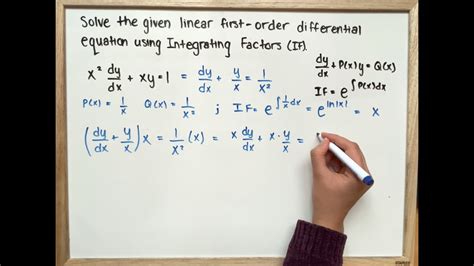 Solve the given linear first-order differential
equation using Integrating Factors (IF).
dy/dx + P(x)y = Q(x)
IF = e^∫P(x)dx
x² dy/dx + xy = 1 = dy/dx + y/x = 1/x²
P(x) = 1/x Q(x) = 1/x² ; IF = e^∫1/x dx = e^ln|x| = x
(dy/dx + y/x)x = 1/x² (x) = x dy/dx + x · y/x =